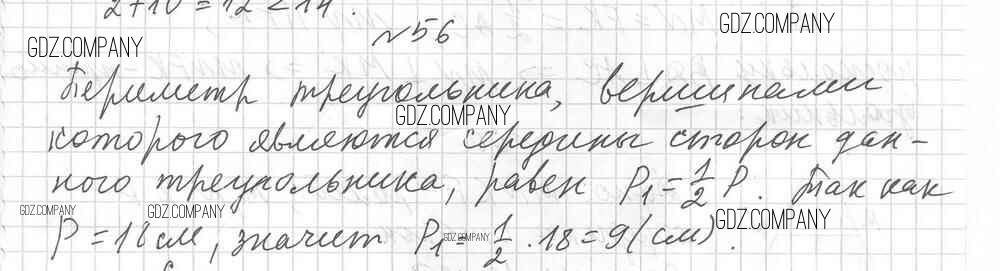 2+10=12<14.
№56
GDZ.COMPANY
Периметр треугольника, вершинами
GDZ.COMPANY
которого являются середины сторон дан-
ного треугольника, равен P₁=1/2 P. Так как
GDZ.COMPANY
GDZ.COMPANY
GDZ.COMPANY
P=18см, значит P₁=1/2·18=9(см).
GDZ.COMPANY